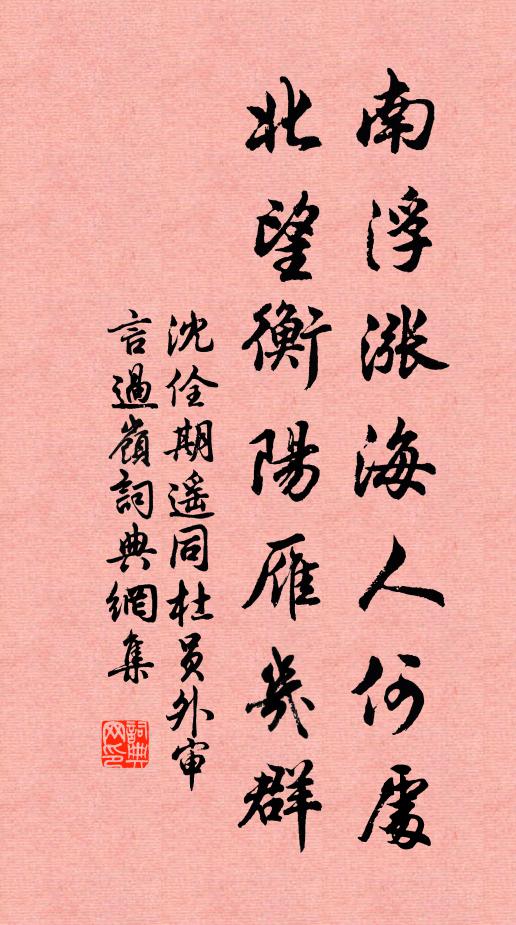 南浮漲海人何處
北望衡陽雁幾群
沈佺期遥同杜員外審
言過嶺詞典網集
詞典網印